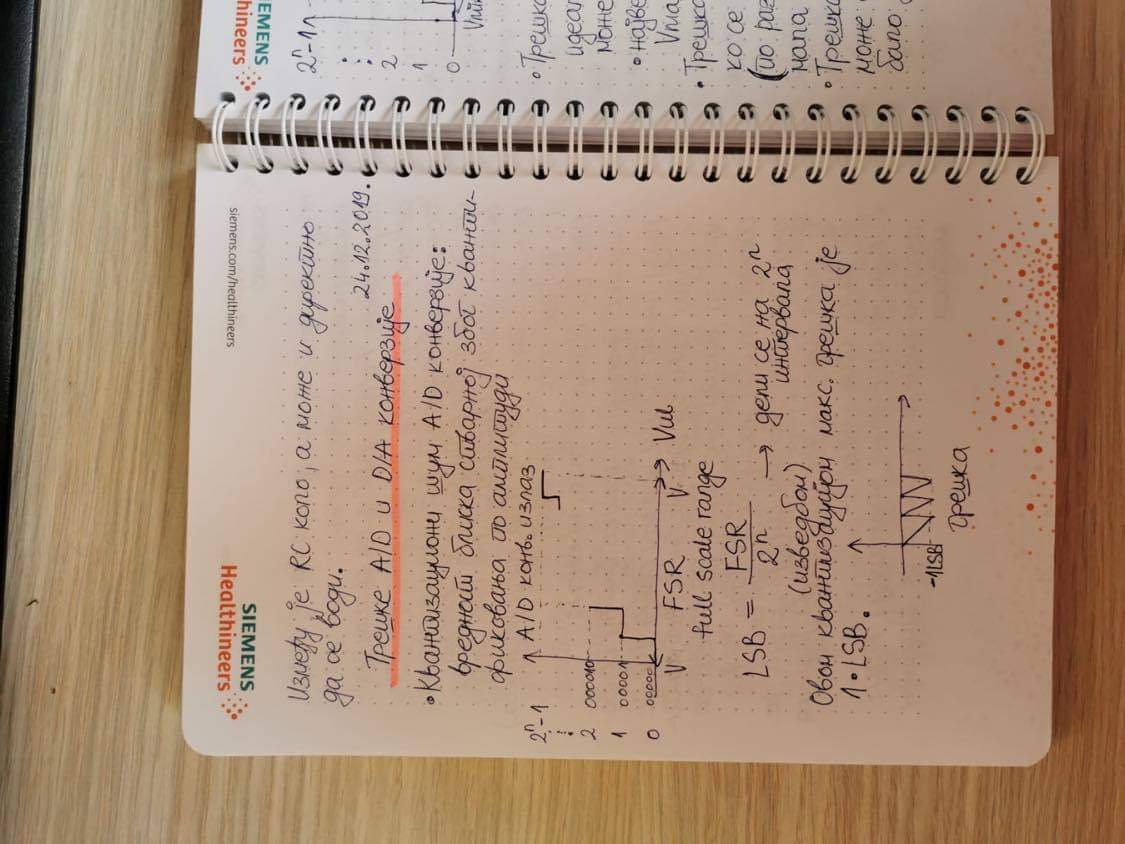 SIEMENS
Healthineers
siemens.com/healthineers
Између је RC коло, а може и директно
да се води.
24.12.2019.
Грешке A/D и D/A конверзије
•Квантизациони шум A/D конверзије:
вредности блиска стварној због кванти-
фиковања по амплитуди
A/D конв. излаз
2ⁿ-1
2 000010
1 00001
0 00000
V FSR V Vul
full scale range
LSB = FSR / 2ⁿ → дели се на 2ⁿ
интервала
(изведбом)
Овом квантизацијом макс. грешка је
1•LSB.
-1LSB
грешка
Healthineers
SIEMENS
2ⁿ-1
2
1
0
• Грешка
идеал
може
• најве
Vma
• Грешка
ко се
(по раз
мала
• Грешка
може
бало